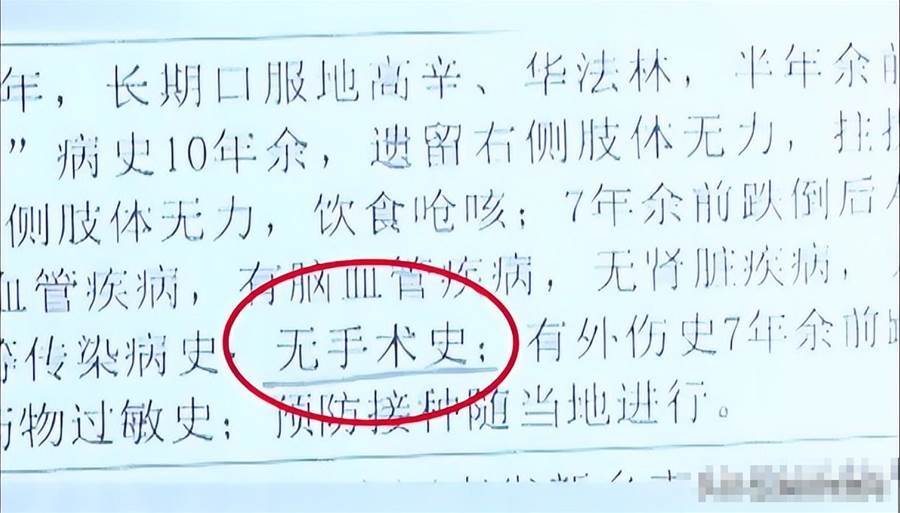 年，长期口服地高辛、华法林，半年余前
”病史10年余，遗留右侧肢体无力，拄
侧肢体无力，饮食呛咳；7年余前跌倒后
血管疾病，有脑血管疾病，无肾脏疾病，
等传染病史；无手术史；有外伤史7年余前
药物过敏史；预防接种随当地进行。